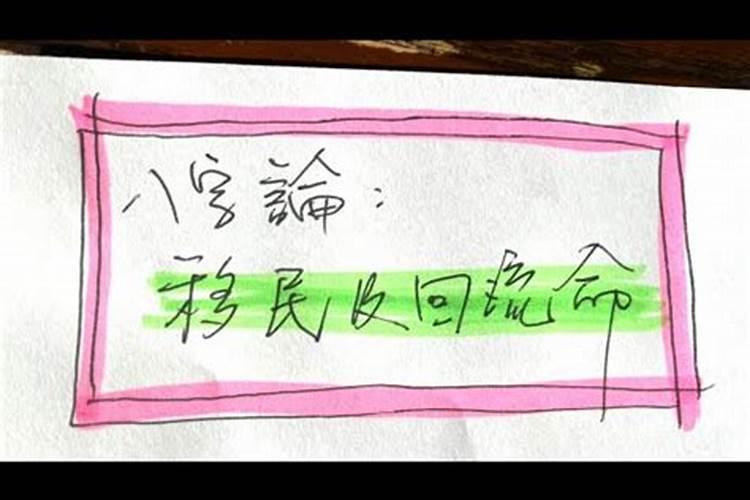 八字論:
移民及回流命